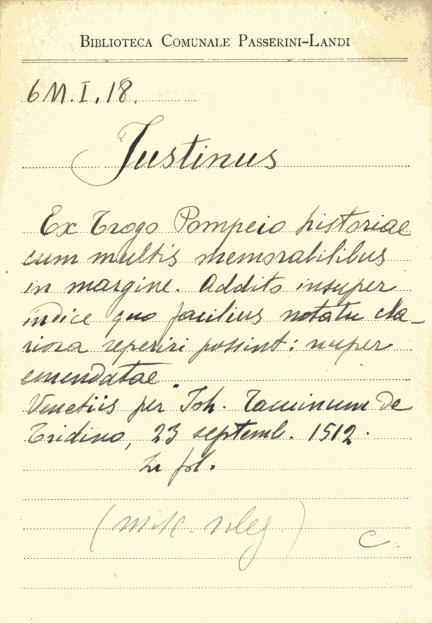 BIBLIOTECA COMUNALE PASSERINI-LANDI
6 M. I. 18.
Justinus
Ex Trogo Pompeio historiae
cum multis memorabilibus
in margine. Addito insuper
indice quo facilius notatu cla-
riora reperiri possint: nuper
emendatae
Venetiis per Joh. Tacuinum de
Tridino, 23 septemb. 1512.
In fol.
C.